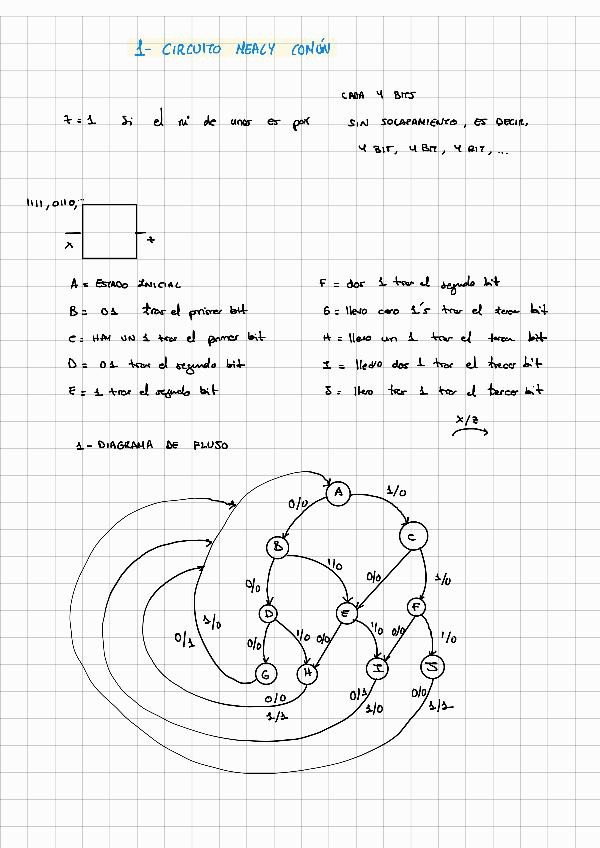 1- CIRCUITO MEALY COMÚN
CADA 4 BITS
z = 1 si el nº de unos es par
SIN SOLAPAMIENTO, ES DECIR,
4 BIT, 4 BIT, 4 BIT, ...
1111, 0110, ..
x
z
A = ESTADO INICIAL
B = 0 1 tras el primer bit
C = HAY UN 1 tras el primer bit
D = 0 1 tras el segundo bit
E = 1 tras el segundo bit
F = dos 1 tras el segundo bit
G = llevo cero 1's tras el tercer bit
H = llevo un 1 tras el tercer bit
I = llevo dos 1 tras el tercer bit
J = llevo tres 1 tras el tercer bit
X/Z
1- DIAGRAMA DE FLUJO
A
0/0
1/0
B
C
1/0
0/0
0/0
1/0
D
E
F
0/1
1/0
0/0
1/0
0/0
1/0
0/0
1/0
G
H
I
J
0/0
1/1
0/1
1/0
0/0
1/1